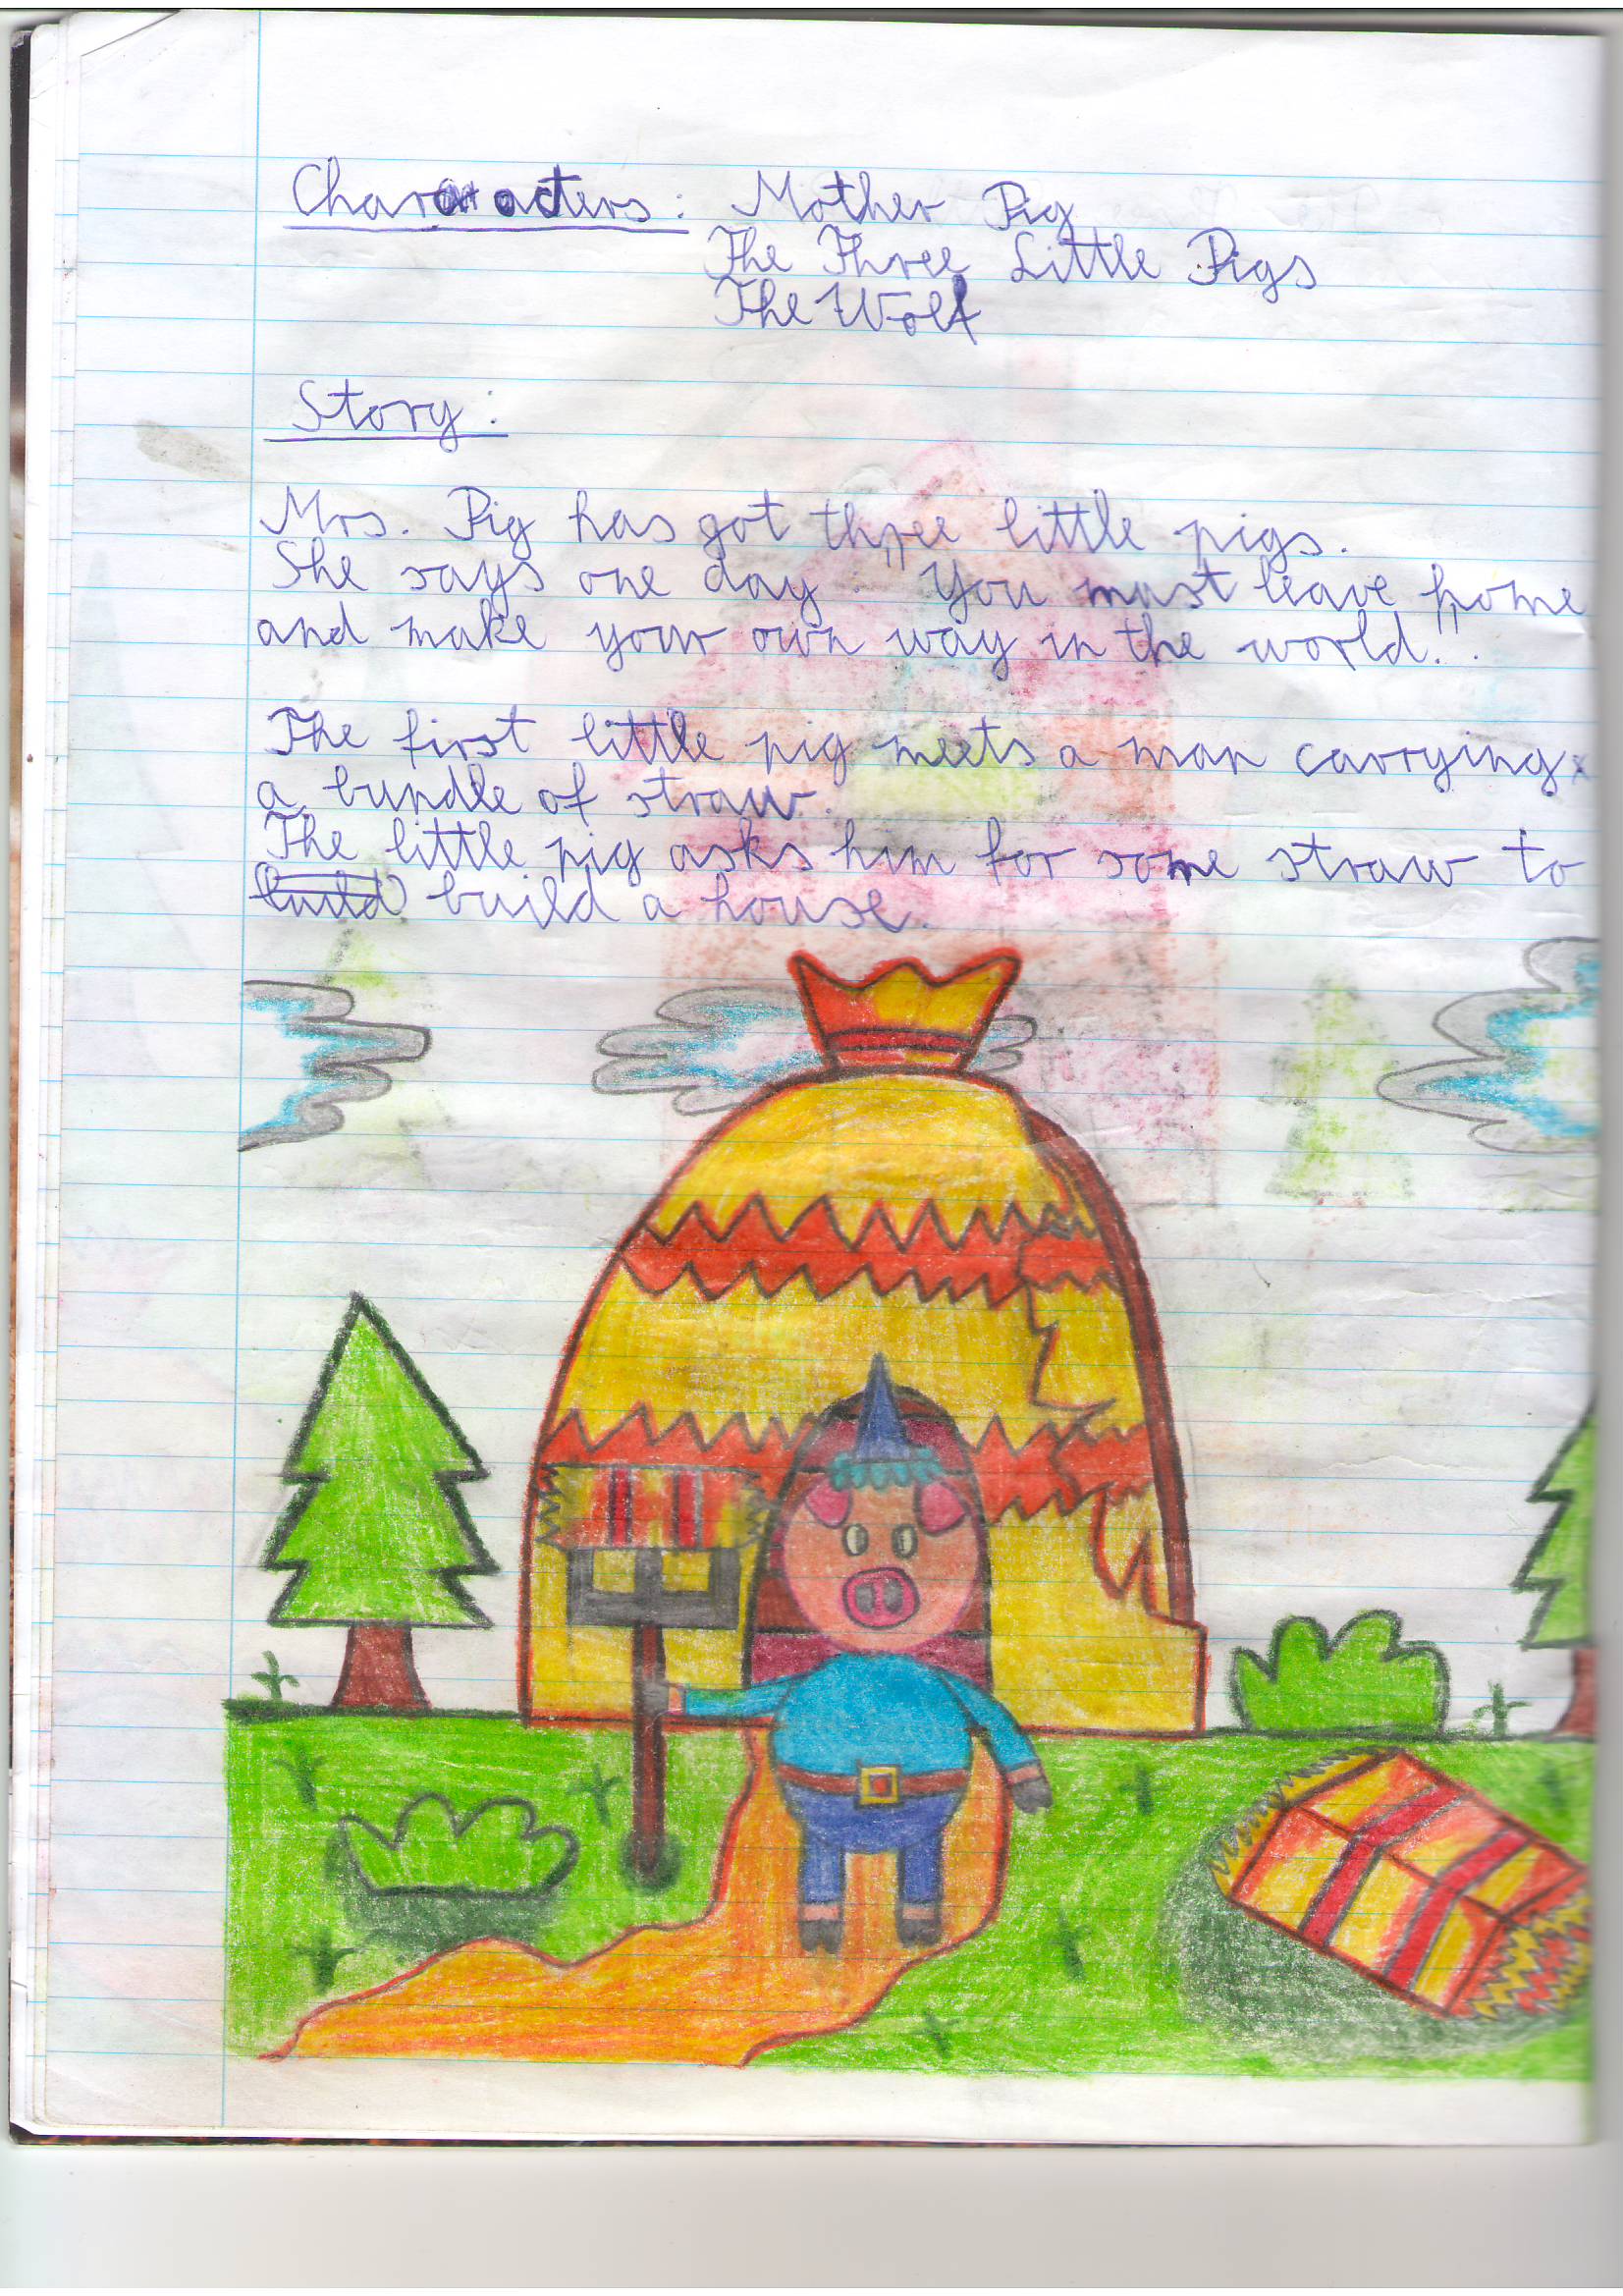 Characters: Mother Pig
The Three Little Pigs
The Wolf
Story:
Mrs. Pig has got three little pigs.
She says one day: "You must leave home
and make your own way in the world."
The first little pig meets a man carrying
a bundle of straw.
The little pig asks him for some straw to
build build a house.